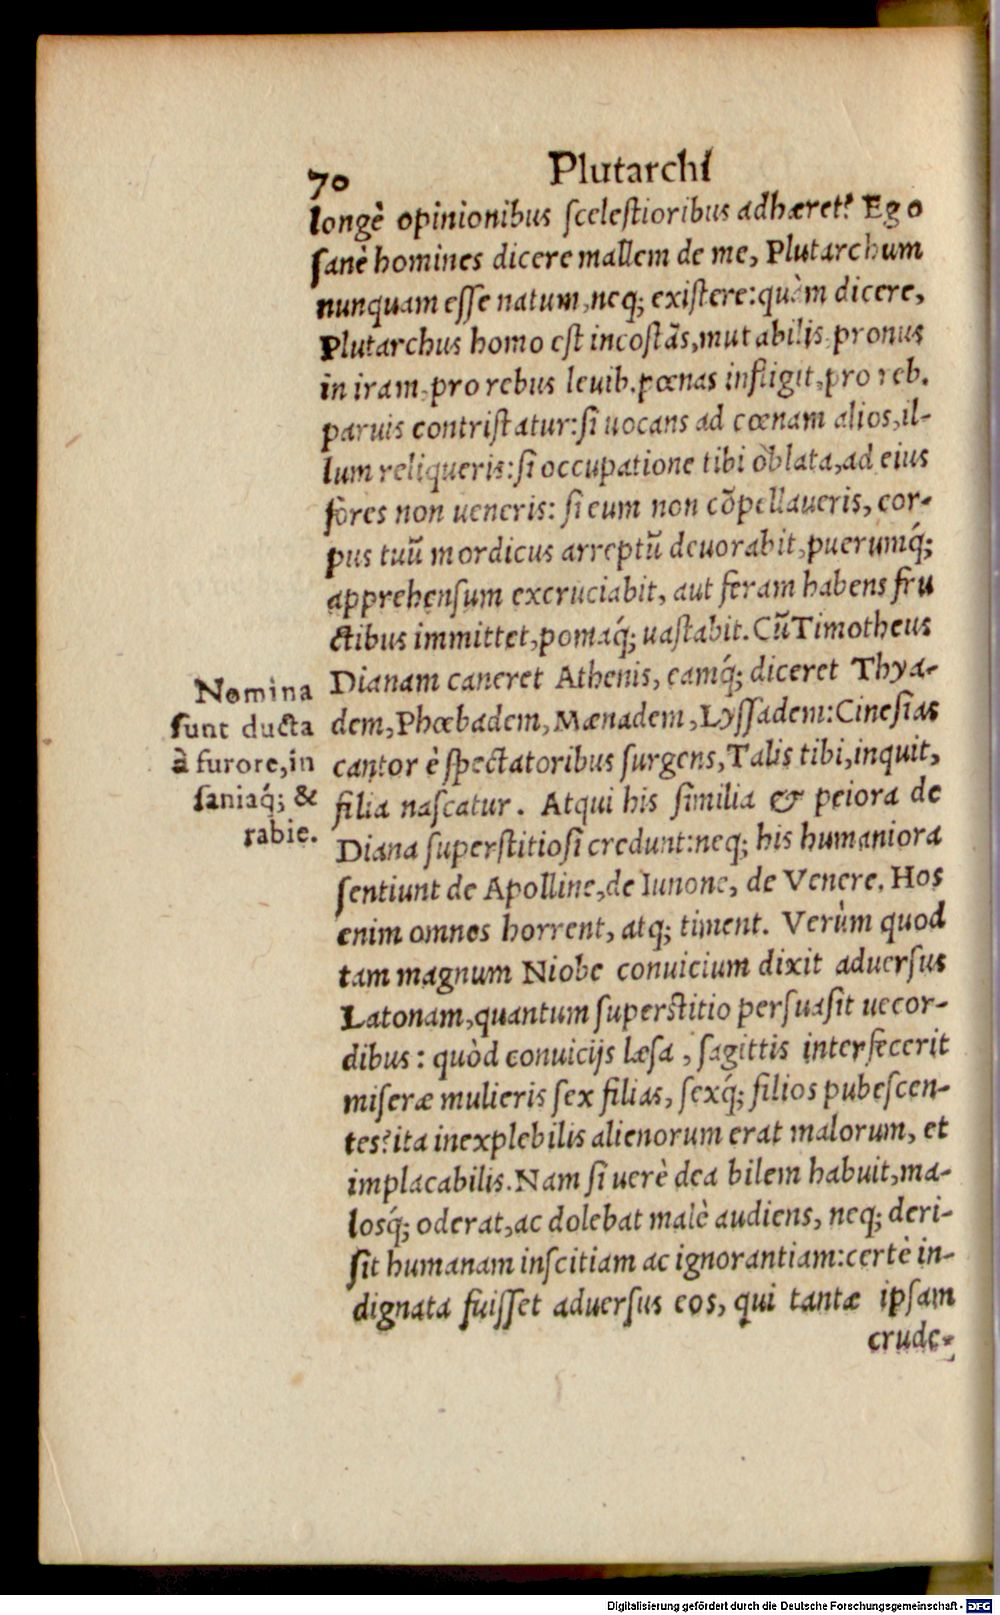 70
Plutarchi
longè opinionibus ſceleſtioribus adhæret? Ego
ſanè homines dicere mallem de me, Plutarchum
nunquam eſſe natum, neq; exiſtere: quàm dicere,
Plutarchus homo eſt incoſtãs, mutabilis, pronus
in iram, pro rebus leuib. pœnas infligit, pro reb.
paruis contriſtatur: ſi uocans ad cœnam alios, il-
lum reliqueris: ſi occupatione tibi oblata, ad eius
fores non ueneris: ſi eum non cõpellaueris, cor-
pus tuũ mordicus arreptũ deuorabit, puerumq́;
apprehenſum excruciabit, aut feram habens fru
ctibus immittet, pomaq́; uaſtabit. Cũ Timotheus
Dianam caneret Athenis, eamq́; diceret Thya-
dem, Phœbadem, Mænadem, Lyſſadem: Cineſias
cantor è ſpectatoribus ſurgens, Talis tibi, inquit,
filia naſcatur. Atqui his ſimilia & peiora de
Diana ſuperſtitioſi credunt: neq; his humaniora
ſentiunt de Apolline, de Iunone, de Venere. Hos
enim omnes horrent, atq; timent. Verùm quod
tam magnum Niobe conuicium dixit aduerſus
Latonam, quantum ſuperſtitio perſuaſit uecor-
dibus: quòd conuicijs læſa, ſagittis interfecerit
miſeræ mulieris ſex filias, ſexq́; filios pubeſcen-
tes? ita inexplebilis alienorum erat malorum, et
implacabilis. Nam ſi uerè dea bilem habuit, ma-
losq́; oderat, ac dolebat malè audiens, neq; deri-
ſit humanam inſcitiam ac ignorantiam: certè in-
dignata fuiſſet aduerſus eos, qui tantæ ipſam
crude-
Nomina
ſunt ducta
à furore, in
ſaniaq́; &
rabie.
Digitalisierung gefördert durch die Deutsche Forschungsgemeinschaft - DFG